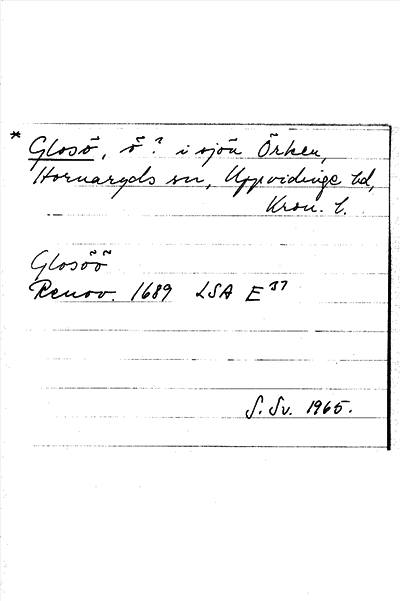 * Glosö, ö? i sjön Örken,
Hornaryds sn, Uppvidinge hd,
Kron. l.
Glosöö
Renov. 1689 LSA E 37
S. Sv. 1965.